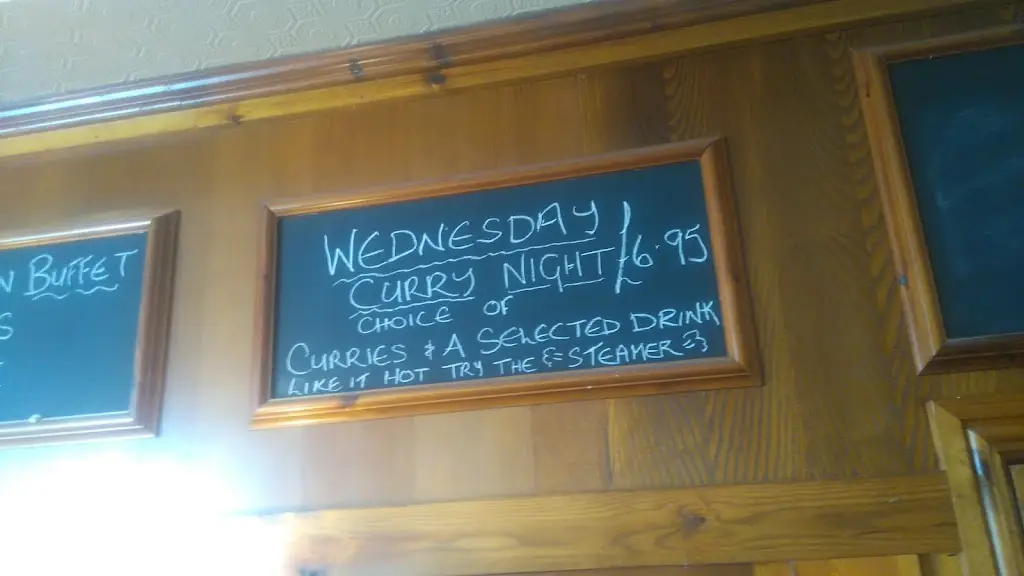 BUFFET
S
WEDNESDAY
CURRY NIGHT £6.95
CHOICE OF
CURRIES & A SELECTED DRINK
LIKE IT HOT TRY THE STEAMER